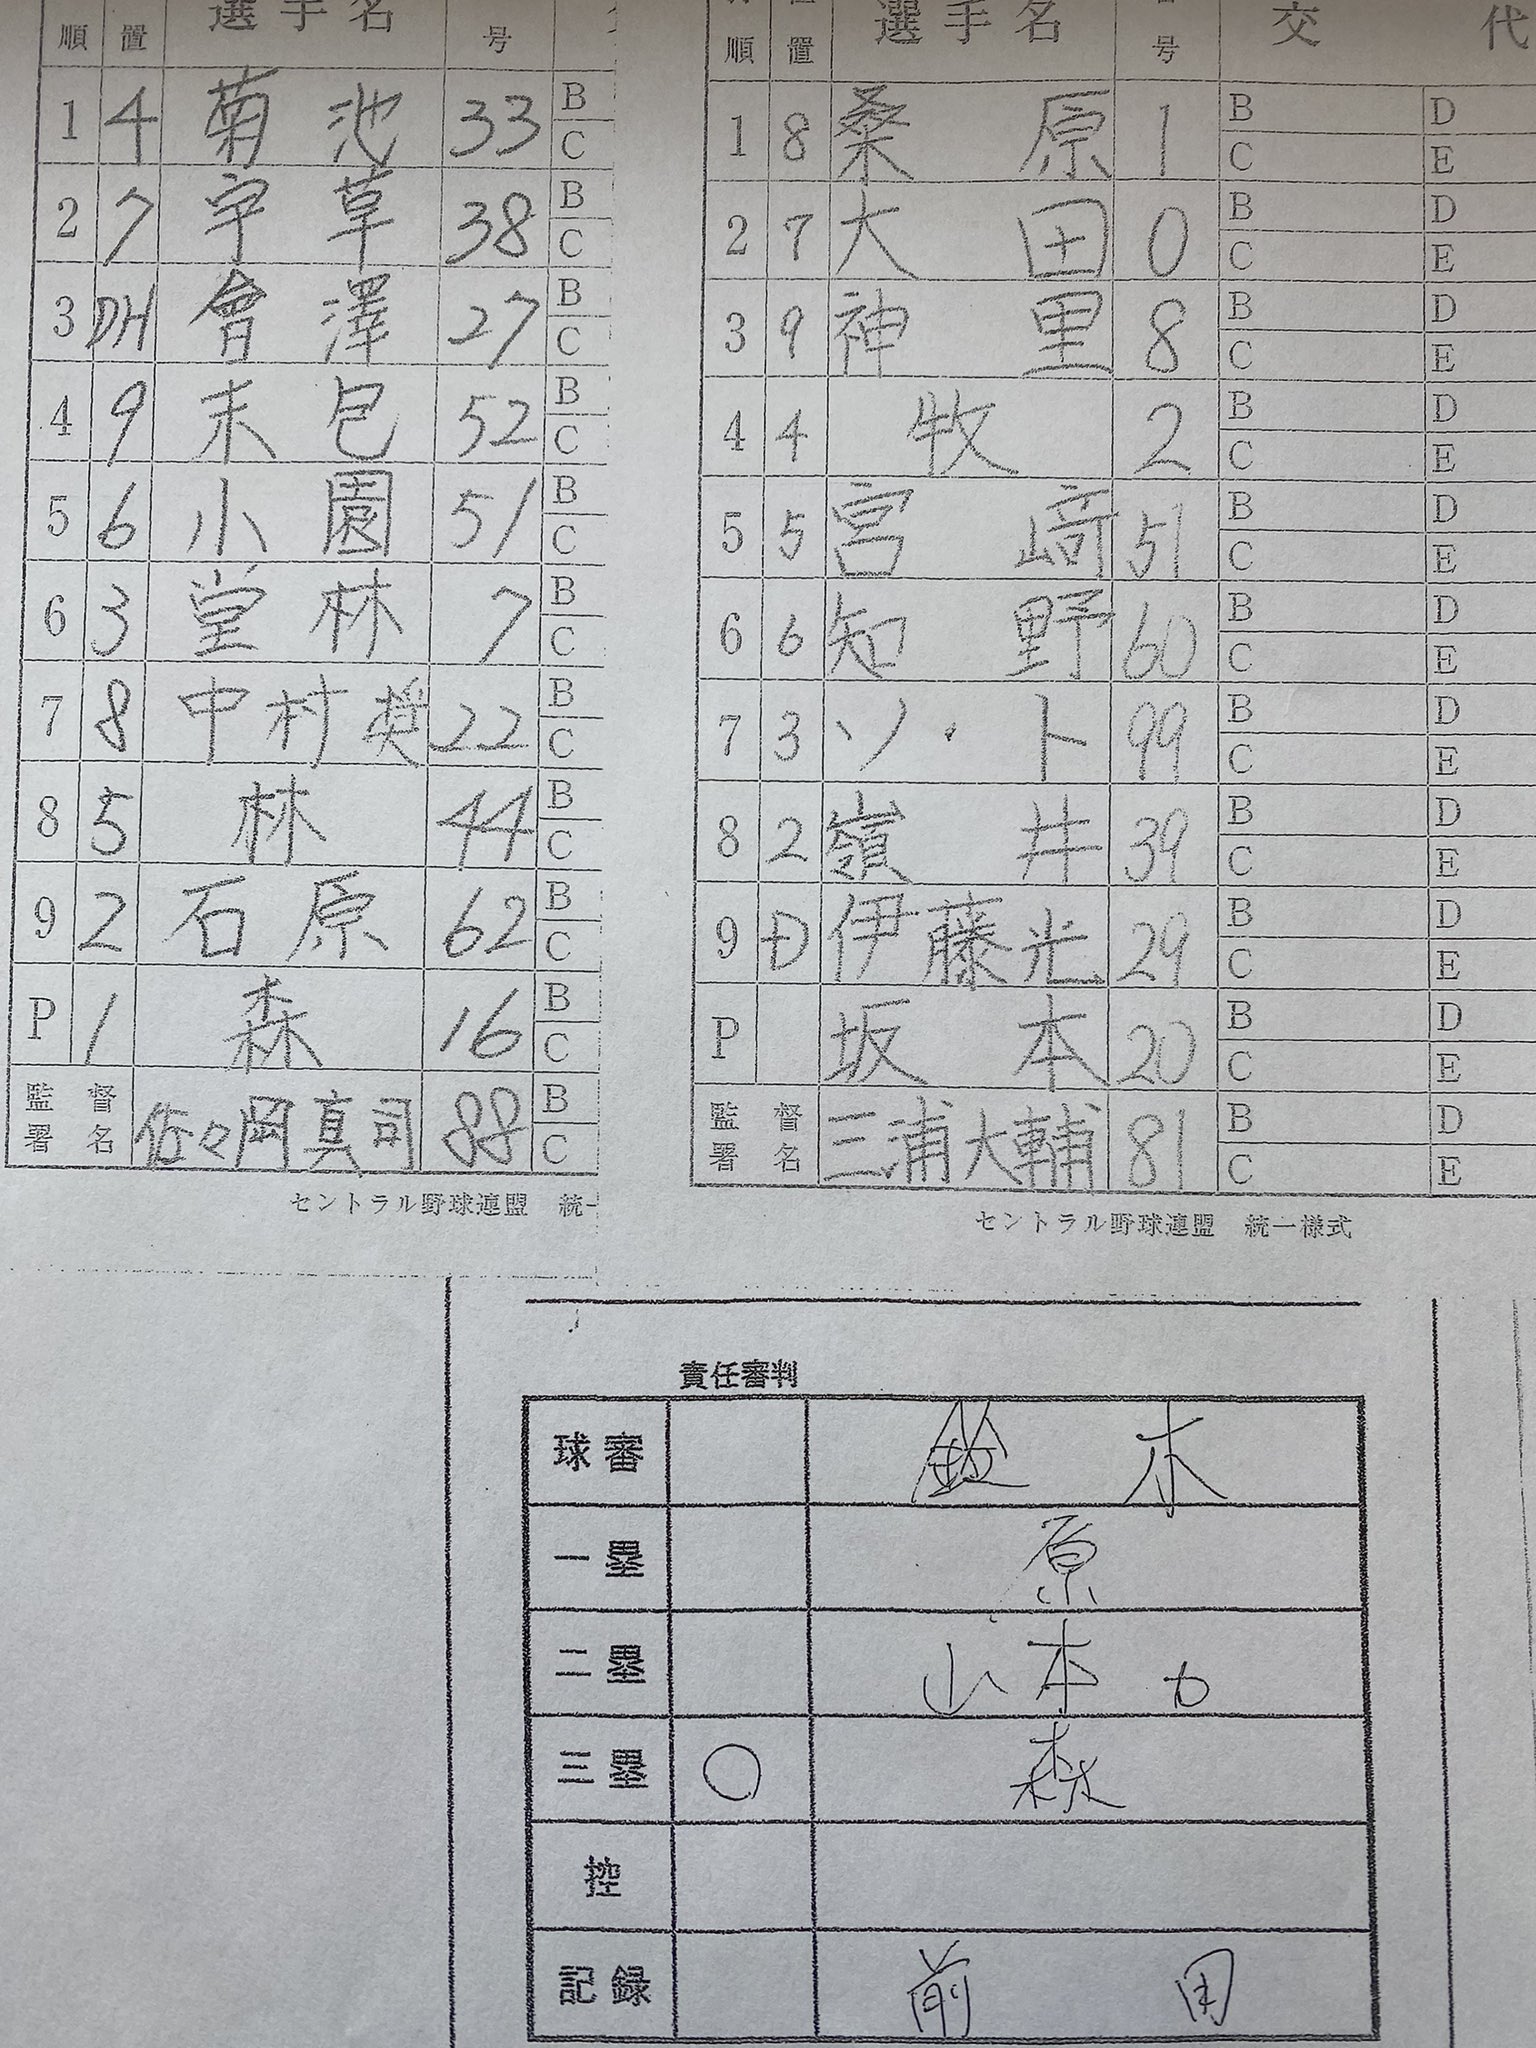 順 置 選手名 号
1 4 菊池 33 B
C
2 7 宇草 38 B
C
3 DH 會澤 27 B
C
4 9 末包 52 B
C
5 6 小園 51 B
C
6 3 堂林 7 B
C
7 8 中村奨 22 B
C
8 5 林 44 B
C
9 2 石原 62 B
C
P 1 森 16 B
C
監督署名 佐々岡真司 88 B
C
セントラル野球連盟 統一
順 置 選手名 号 交代
1 8 桑原 1 B D
C E
2 7 大田 0 B D
C E
3 9 神里 8 B D
C E
4 4 牧 2 B D
C E
5 5 宮﨑 51 B D
C E
6 6 知野 60 B D
C E
7 3 ソ・ト 99 B D
C E
8 2 嶺井 39 B D
C E
9 D 伊藤光 29 B D
C E
P 坂本 20 B D
C E
監督署名 三浦大輔 81 B D
C E
セントラル野球連盟 統一様式
責任審判
球審 本
一塁 原
二塁 山本力
三塁 ○ 森
控
記録 前田